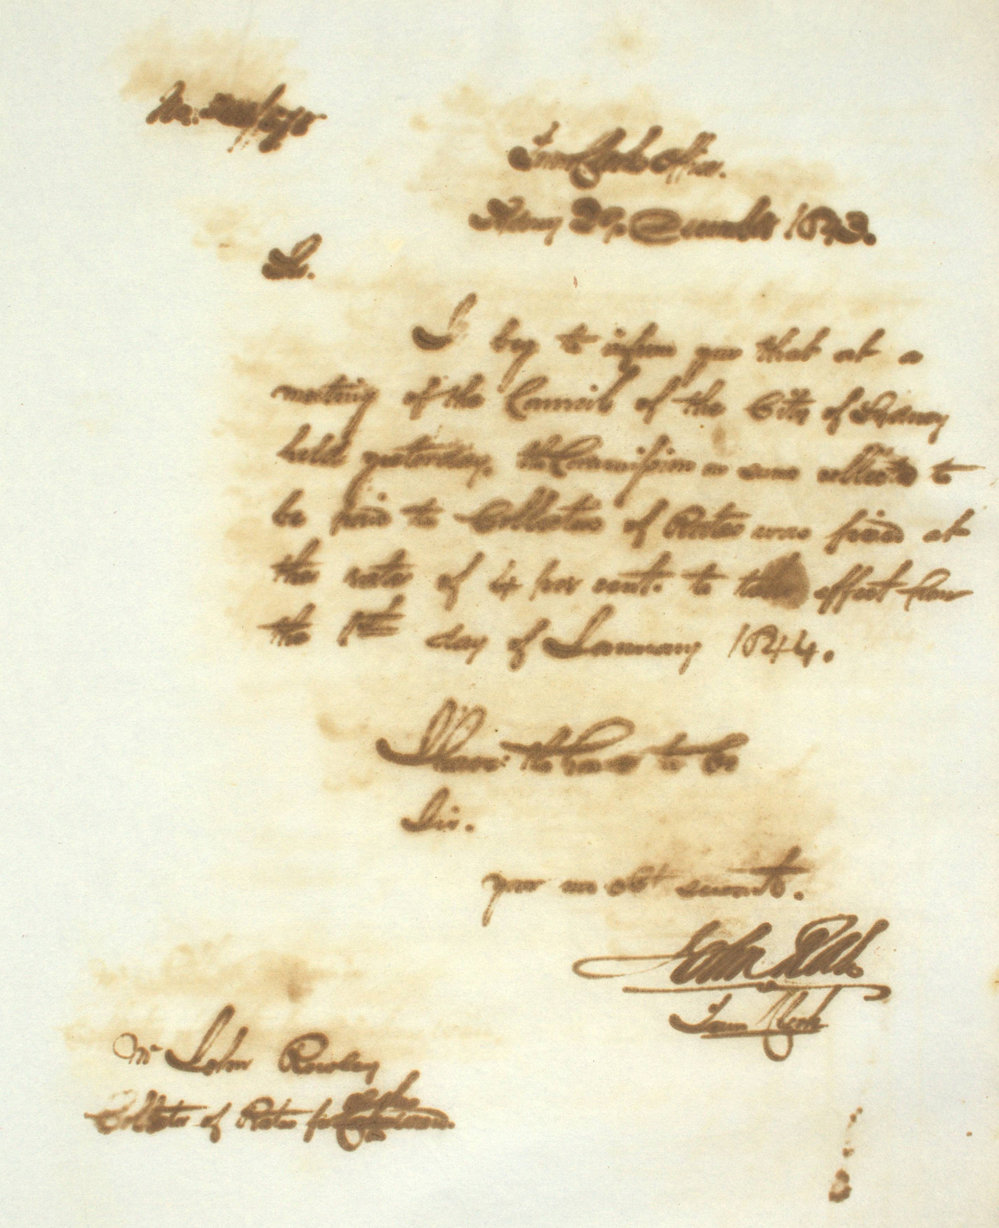 Town Clerks Office.
Sydney December 1843.
Sir.
I beg to inform you that at a
meeting of the Council of the City of Sydney
held yesterday, the Commission on sums collected to
be paid to Collectors of Rates was fixed at
the rate of 4 per cent. to take effect from
the 1st day of January 1844.
I have the honor to be
Sir.
your mo obt servant.
John Rae
Town Clerk
Mr John Rowley
Collector of Rates for Ward.